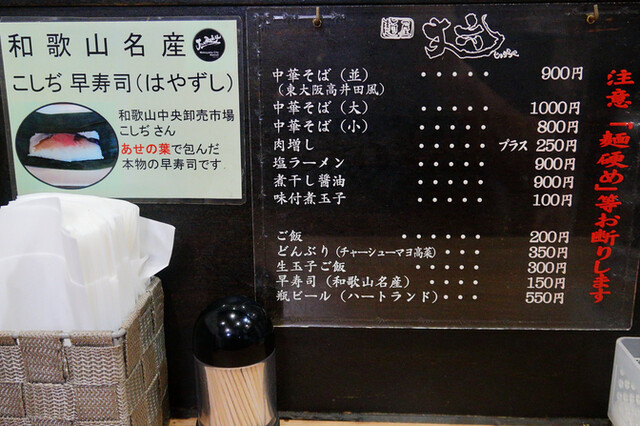 和歌山名産
こしぢ 早寿司(はやずし)
和歌山中央卸売市場
こしぢ さん
あせの葉で包んだ
本物の早寿司です
麺屋
中華そば（並） ・・・・・ 900円
（東大阪高井田風）
中華そば（大） ・・・・・ 1000円
中華そば（小） ・・・・・ 800円
肉増し ・・・・・ プラス 250円
塩ラーメン ・・・・・ 900円
煮干し醤油 ・・・・・ 900円
味付煮玉子 ・・・・・ 100円
ご飯 ・・・・・ 200円
どんぶり（チャーシューマヨ高菜） ・・・・ 350円
生玉子ご飯 ・・・・・ 300円
早寿司（和歌山名産） ・・・・ 150円
瓶ビール（ハートランド） ・・・ 550円
注意「麺硬め」等お断りします